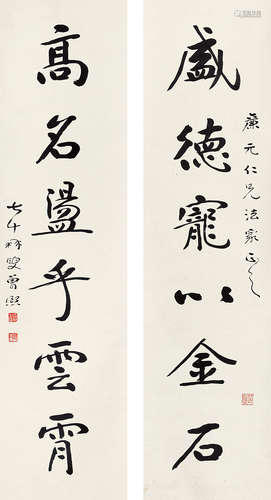 廉元仁兄法家正之
盛德寵以金石
高名盪乎雲霄
七十叟曾熙